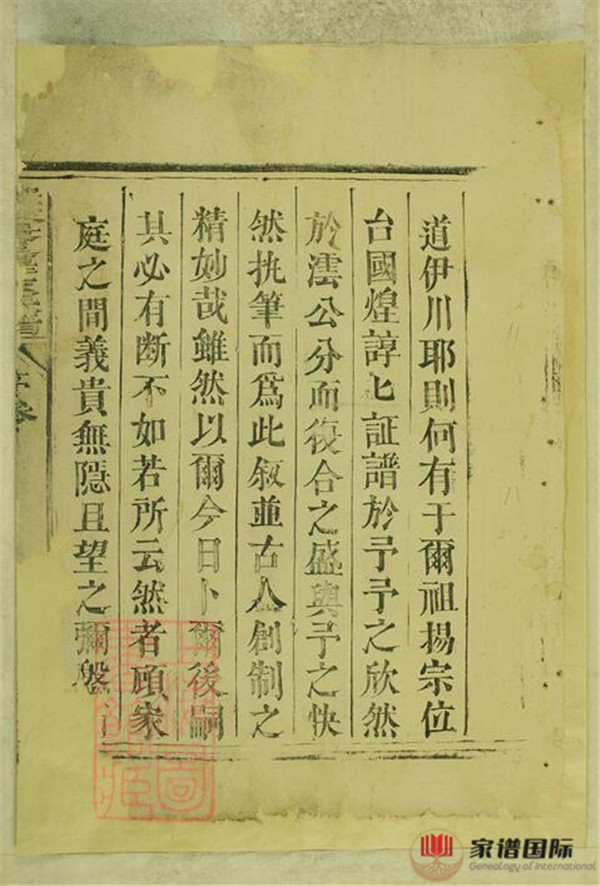 道伊川耶則何有于爾祖揚宗位
台國煌諄七証譜於予予之欣然
於澐公分而復合之盛與予之快
然执筆而爲此叙並古人創制之
精妙哉雖然以爾今日卜爾後嗣
其必有断不如若所云然者顧家
庭之間義貴無隱且望之彌殷
家谱国际
Genealogy of International